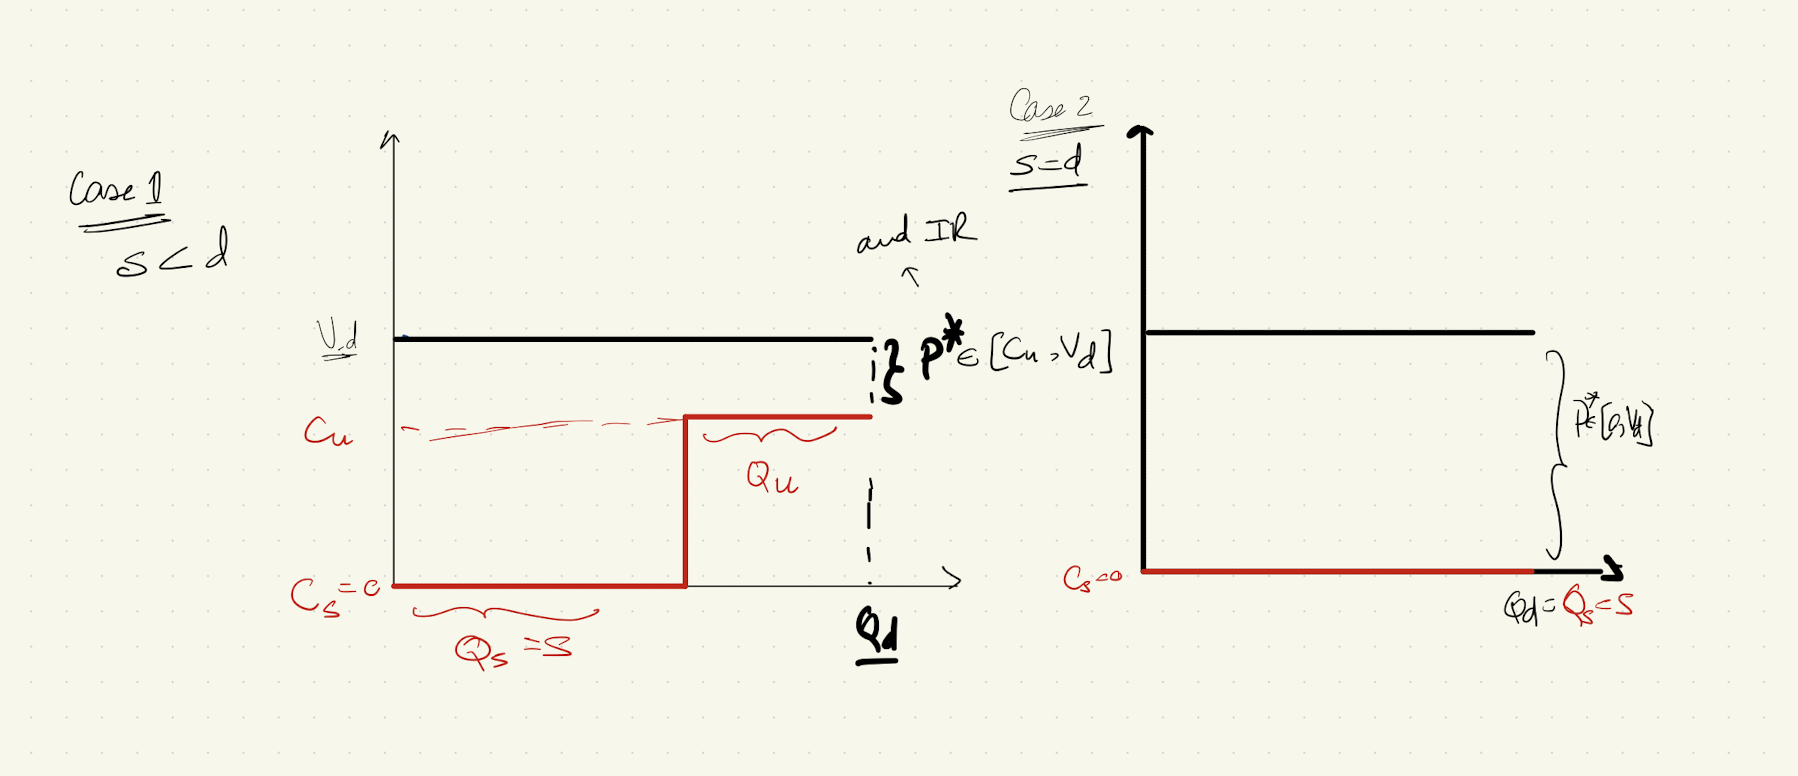 Case 1
s < d
V_d
Cu
Cs = 0
Qs = S
Qu
Qd
and IR
P* ∈ [Cu, Vd]
Case 2
s = d
Cs = 0
P* ∈ [0, Vd]
Qd = Qs = S